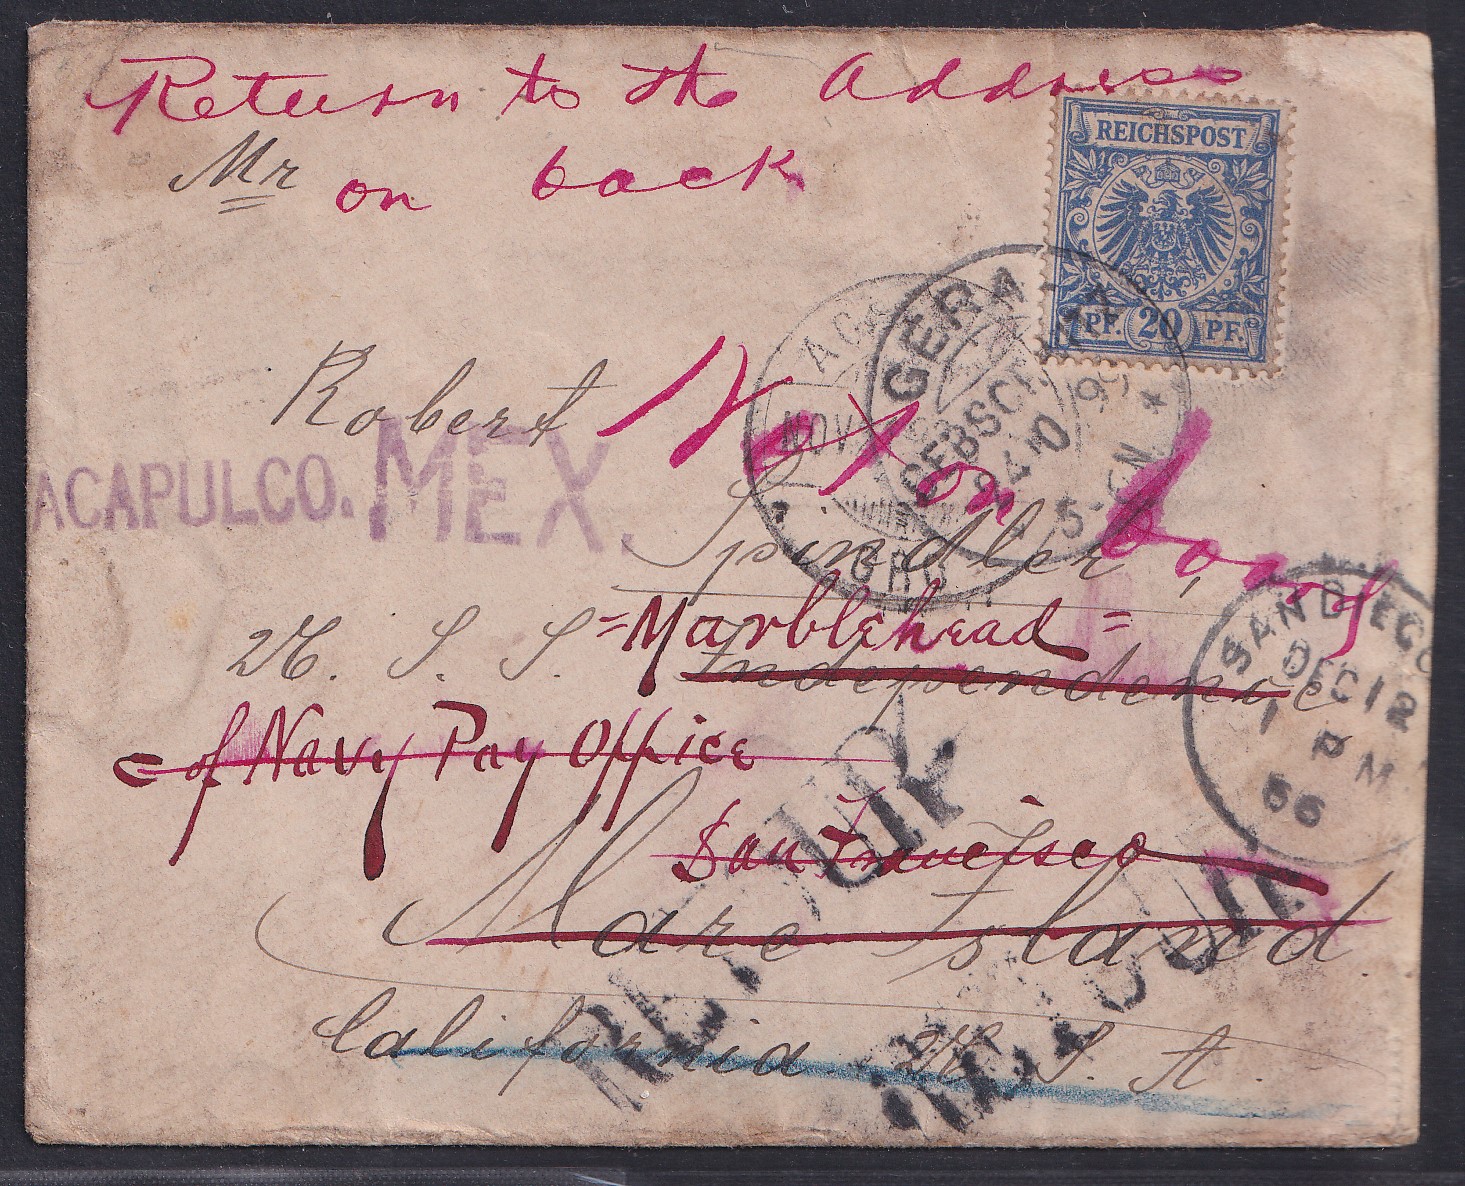 Return to the address
Mr on back
REICHSPOST
PF. 20 PF.
GERA
ACA
NOV
5-6N.
GRO
Robert Not on board
ACAPULCO. MEX.
Spindler,
U. S. S. =Marblehead=
Independence
SAN DIEGO
DEC 12
1 PM
c of Navy Pay Office
San Francisco
Mare Island
California. U. S. A.
RETOUR
RETOUR